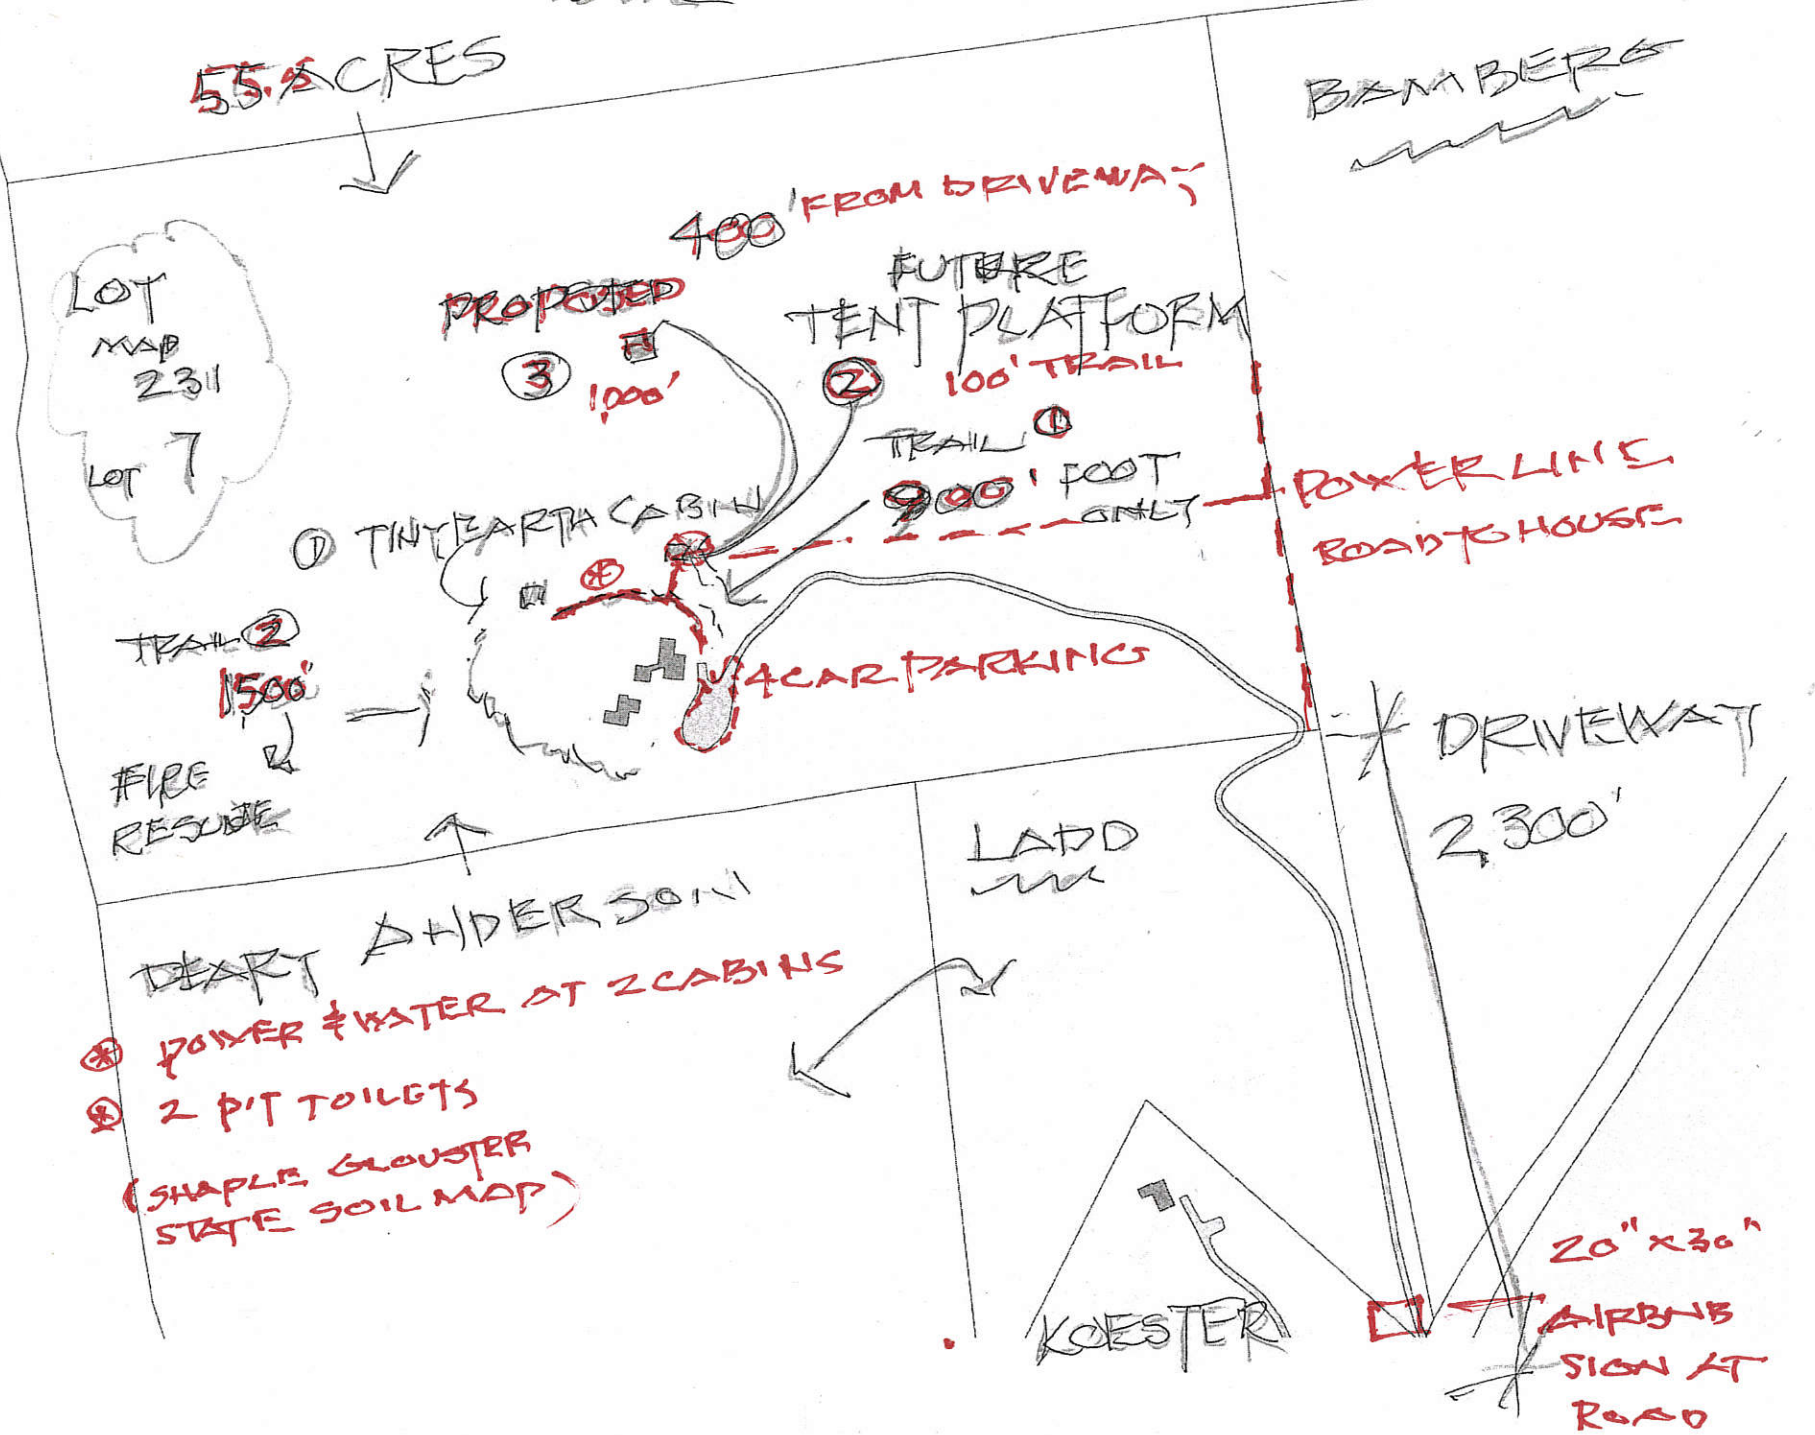 55.5 ACRES
BAMBERG
400' FROM DRIVEWAY
LOT
MAP
2311
LOT 7
PROPOSED
③
1,000'
FUTURE
TENT PLATFORM
②
100' TRAIL
TRAIL ①
900' FOOT
ONLY
POWER LINE
ROAD TO HOUSE
① TINY EARTH CABIN
TRAIL ②
1,500'
FIRE
RESCUE
4 CAR PARKING
DRIVEWAY
2,300'
LADD
ANDERSON
POWER & WATER AT 2 CABINS
2 PIT TOILETS
(SHAPLE GLOUSTER
STATE SOIL MAP)
KOESTER
20" x 30"
AIRBNB
SIGN AT
ROAD